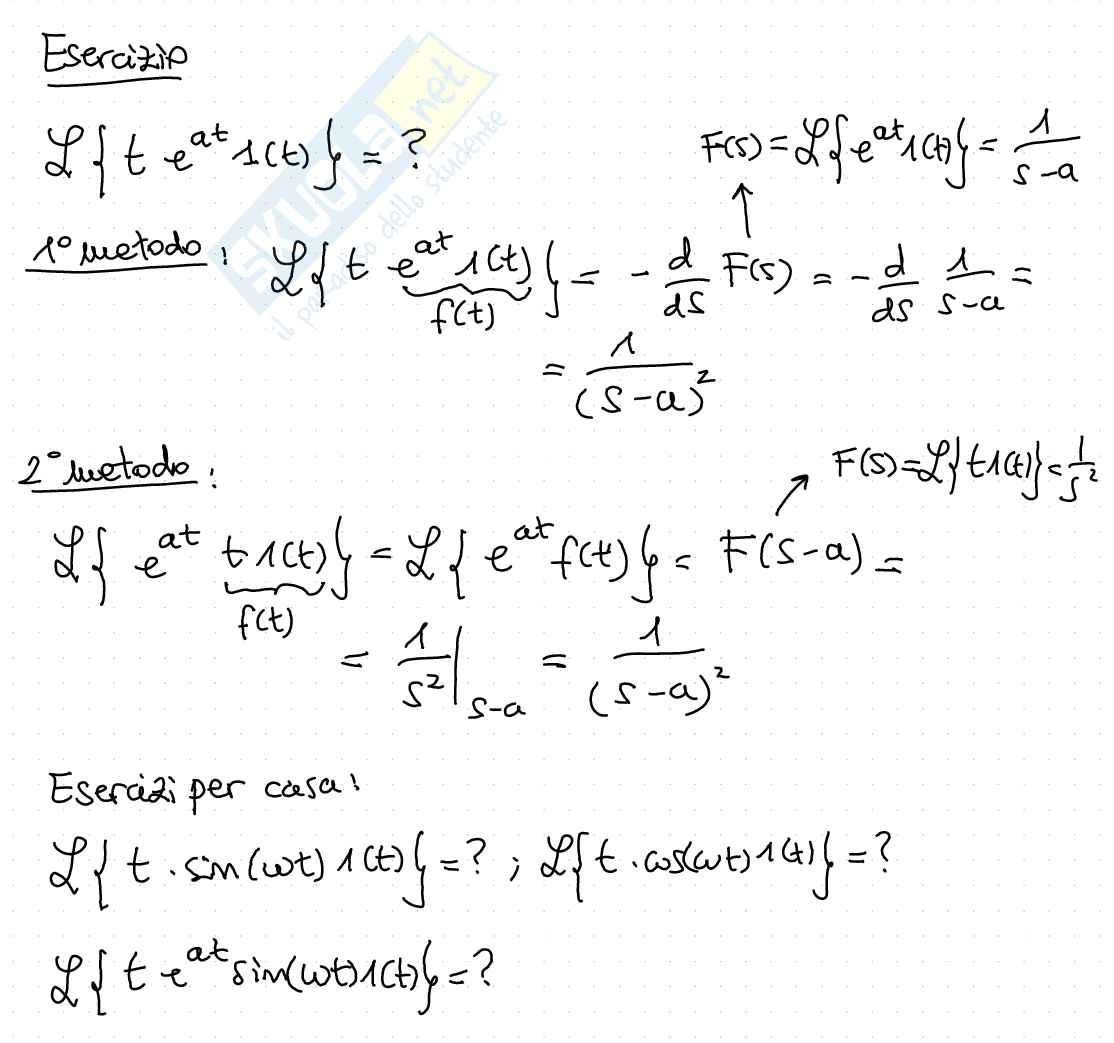 Esercizio
ℒ{t e^{at} 1(t)} = ?
F(s) = ℒ{e^{at} 1(t)} = 1/(s-a)
1° metodo: ℒ{t e^{at} 1(t)} = - d/ds F(s) = - d/ds 1/(s-a) =
f(t)
= 1/(s-a)^2
2° metodo:
F(s) = ℒ{t 1(t)} = 1/s^2
ℒ{e^{at} t 1(t)} = ℒ{e^{at} f(t)} = F(s-a) =
f(t)
= 1/s^2 |_{s-a} = 1/(s-a)^2
Esercizi per casa:
ℒ{t · sin(ωt) 1(t)} = ? ; ℒ{t · cos(ωt) 1(t)} = ?
ℒ{t e^{at} sin(ωt) 1(t)} = ?
SKUOLA.net
il paradiso dello studente